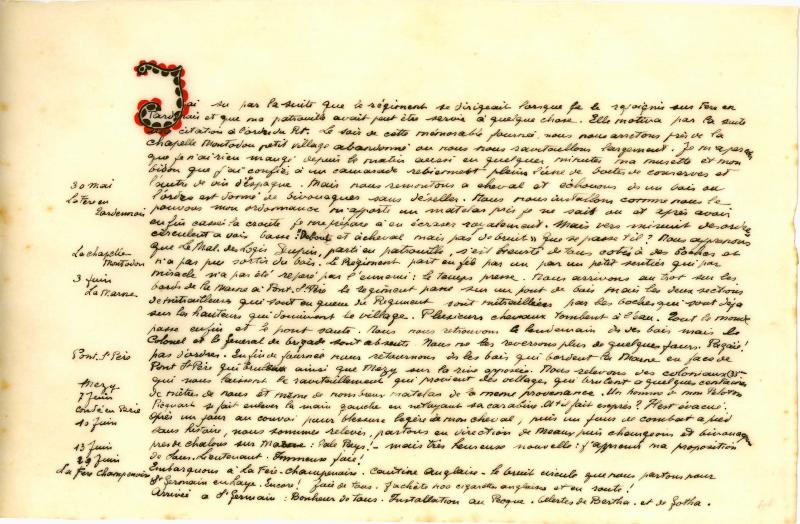 J'ai su par la suite que le régiment se dirigeait lorsque je le rejoignis sur Fère en
Tardenois et que ma patrouille avait peut être servie à quelque chose. Elle motiva par la suite
une citation à l'ordre du Rt. Le soir de cette mémorable journée, nous nous arrêtons près de la
chapelle Montodon petit village abandonné où nous nous ravitaillons largement. Je m'aperçois
que je n'ai rien mangé depuis le matin aussi en quelques minutes ma musette et mon
bidon que j'ai confiés à un camarade reviennent pleins l'une de boites de conserves et
30 mai
l'autre de vin d'Espagne. Mais nous remontons à cheval et échouons ds un bois où
La Fère en
l'ordre est donné de bivouaquer sans desseller. Nous nous installons comme nous le
Tardennois
pouvons mon ordonnance m'apporte un matelas pris je ne sait où et après avoir
enfin cassé la croute je me prépare à en écraser royalement. Mais vers minuit des ordres
circulent à voix basse : Debout et à cheval mais pas de bruit. Que se passe t'il ? Nous apprenons
La chapelle
que le Mal. des Logis Dupin, parti en patrouille, s'est heurté de tous cotés à des boches et
Montodon
n'a pas pu sortir du bois. Le Régiment part en file un par un par un petit sentier qui par
3 Juin
miracle n'a pas été repéré par l'ennemi : le temps presse. Nous arrivons au trot sur les
La Marne
bords de la Marne à Pont. St Péis le régiment passe sur un pont de bois mais les deux sections
de mitrailleurs qui sont en queue de Régiment sont mitraillées par les boches qui sont déja
sur les hauteurs qui dominent le village. Plusieurs chevaux tombent à l'eau. Tout le monde
passe enfin et le pont saute. Nous nous retrouvons le lendemain ds des bois mais le
Colonel et le General de brigade sont absents. Nous ne les reverrons plus de quelques jours.
Pont. St Péis
pas d'ordres. En fin de journée nous retournons ds les bois qui bordent la Marne en face de
Pont St Péis qui ainsi que Mézy sur la rive opposée. Nous relevons des coloniaux
Mézy
qui nous laissent le ravitaillement qui provient des villages qui brulent à quelques centaines
7 Juin
de mètres de nous et même de nombreux matelas de la même provenance. Un homme de mon Peloton
Condé en Brie
Picovant se fait enlever la main gauche en nettoyant sa carabine. At-il fait exprès ? Il est évacué.
10 Juin
Après un jour au convoi pour blessure légère de mon cheval, puis un jour de combat à pied
sans histoire, nous sommes relevés, partons en direction de Meaux puis changeons et bivouaquons
13 Juin
près de Chalons sur Marne : Sale Pays ! - mais très heureuse nouvelle : j'apprends ma proposition
29 Juin
de Sous. Lieutenant. Immense joie !
La Fère Champenoise
Embarquons à La Fère. Champenoise. Cantine Anglaise. le bruit circule que nous partons pour
St Germain en Laye. Encore ! Joie de tous. J'achète nos cigarettes anglaises et en route !
Arrivée à St Germain : Bonheur de tous. Installation au Pecq. Alertes de Bertha. et de Gotha.